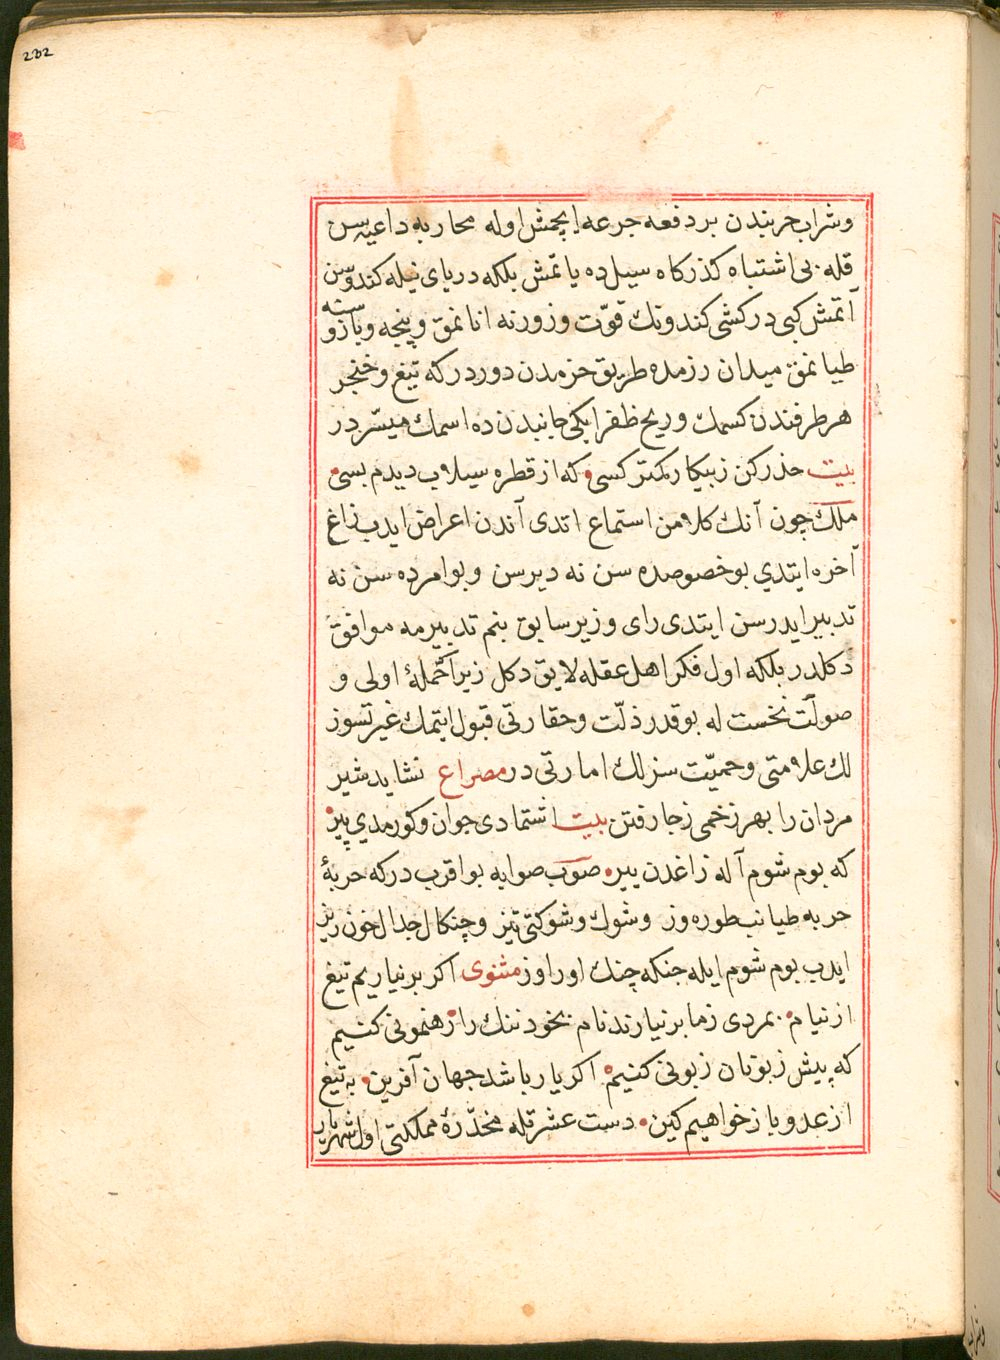 232
وشراب حربندن بر دفعه جرعه ایچمش اوله محاربه داعیه‌سن
قله بی اشتباه کذرکاه سیلده یاتمش بلکه دریای نیله کندوسن
آتمش کبی در کشی کندونك قوّت و زورنه انانمق و پنجه و بازوسته
طیانمق میدان رزمده طریق حزمدن دوردر که تیغ و خنجر
هر طرفندن کسمك و ریح ظفر ایکی جانبدن ده اسمك میسّر در
بیت حذر کن ز پیکار کمتر کسی • که از قطره سیلاب دیدم بسی •
ملك چون آنك کلامن استماع اتدی آندن اعراض ایدب زاغ
آخره ایتدي بو خصوصده سن نه دیرسن و بو امرده سن نه
تدبیر ایدرسن ایتدی رای وزیر سابق بنم تدبیرمه موافق
دکلدر بلکه اول فکر اهل عقله لایق دکل زیرا حملهٔ اولی و
صولت نخست له بو قدر ذلّت و حقارتی قبول ایتمك غیرتسوز
لك علامتی و حمیّت سزلك امارتی در مصراع نشاید شیر
مردان را بهر زخمی ز جا رفتن بیت اشتمادی جوان و کورمدي پیر •
که بوم شوم آله زاغدن ییر • صوب صوابه بو اقرب در که حربهٔ
حربه طیانب طوره‌وز و شوك و شوکتی تیز و چنکال جدال خون ریز
ایدب بوم شوم ایله جنکه چنك اوراوز مثنوی اکر بر نیاریم تیغ
از نیام • بمردی ز ما بر نیارند نام • بخود ننك را رهنمونی کنیم
که پیش زبونان زبونی کنیم • اکر یار باشد جهان آفرین • به تیغ
از عدو باز خواهیم کین • دست عشرتله مخدّرهٔ مملکتی اول شهریار